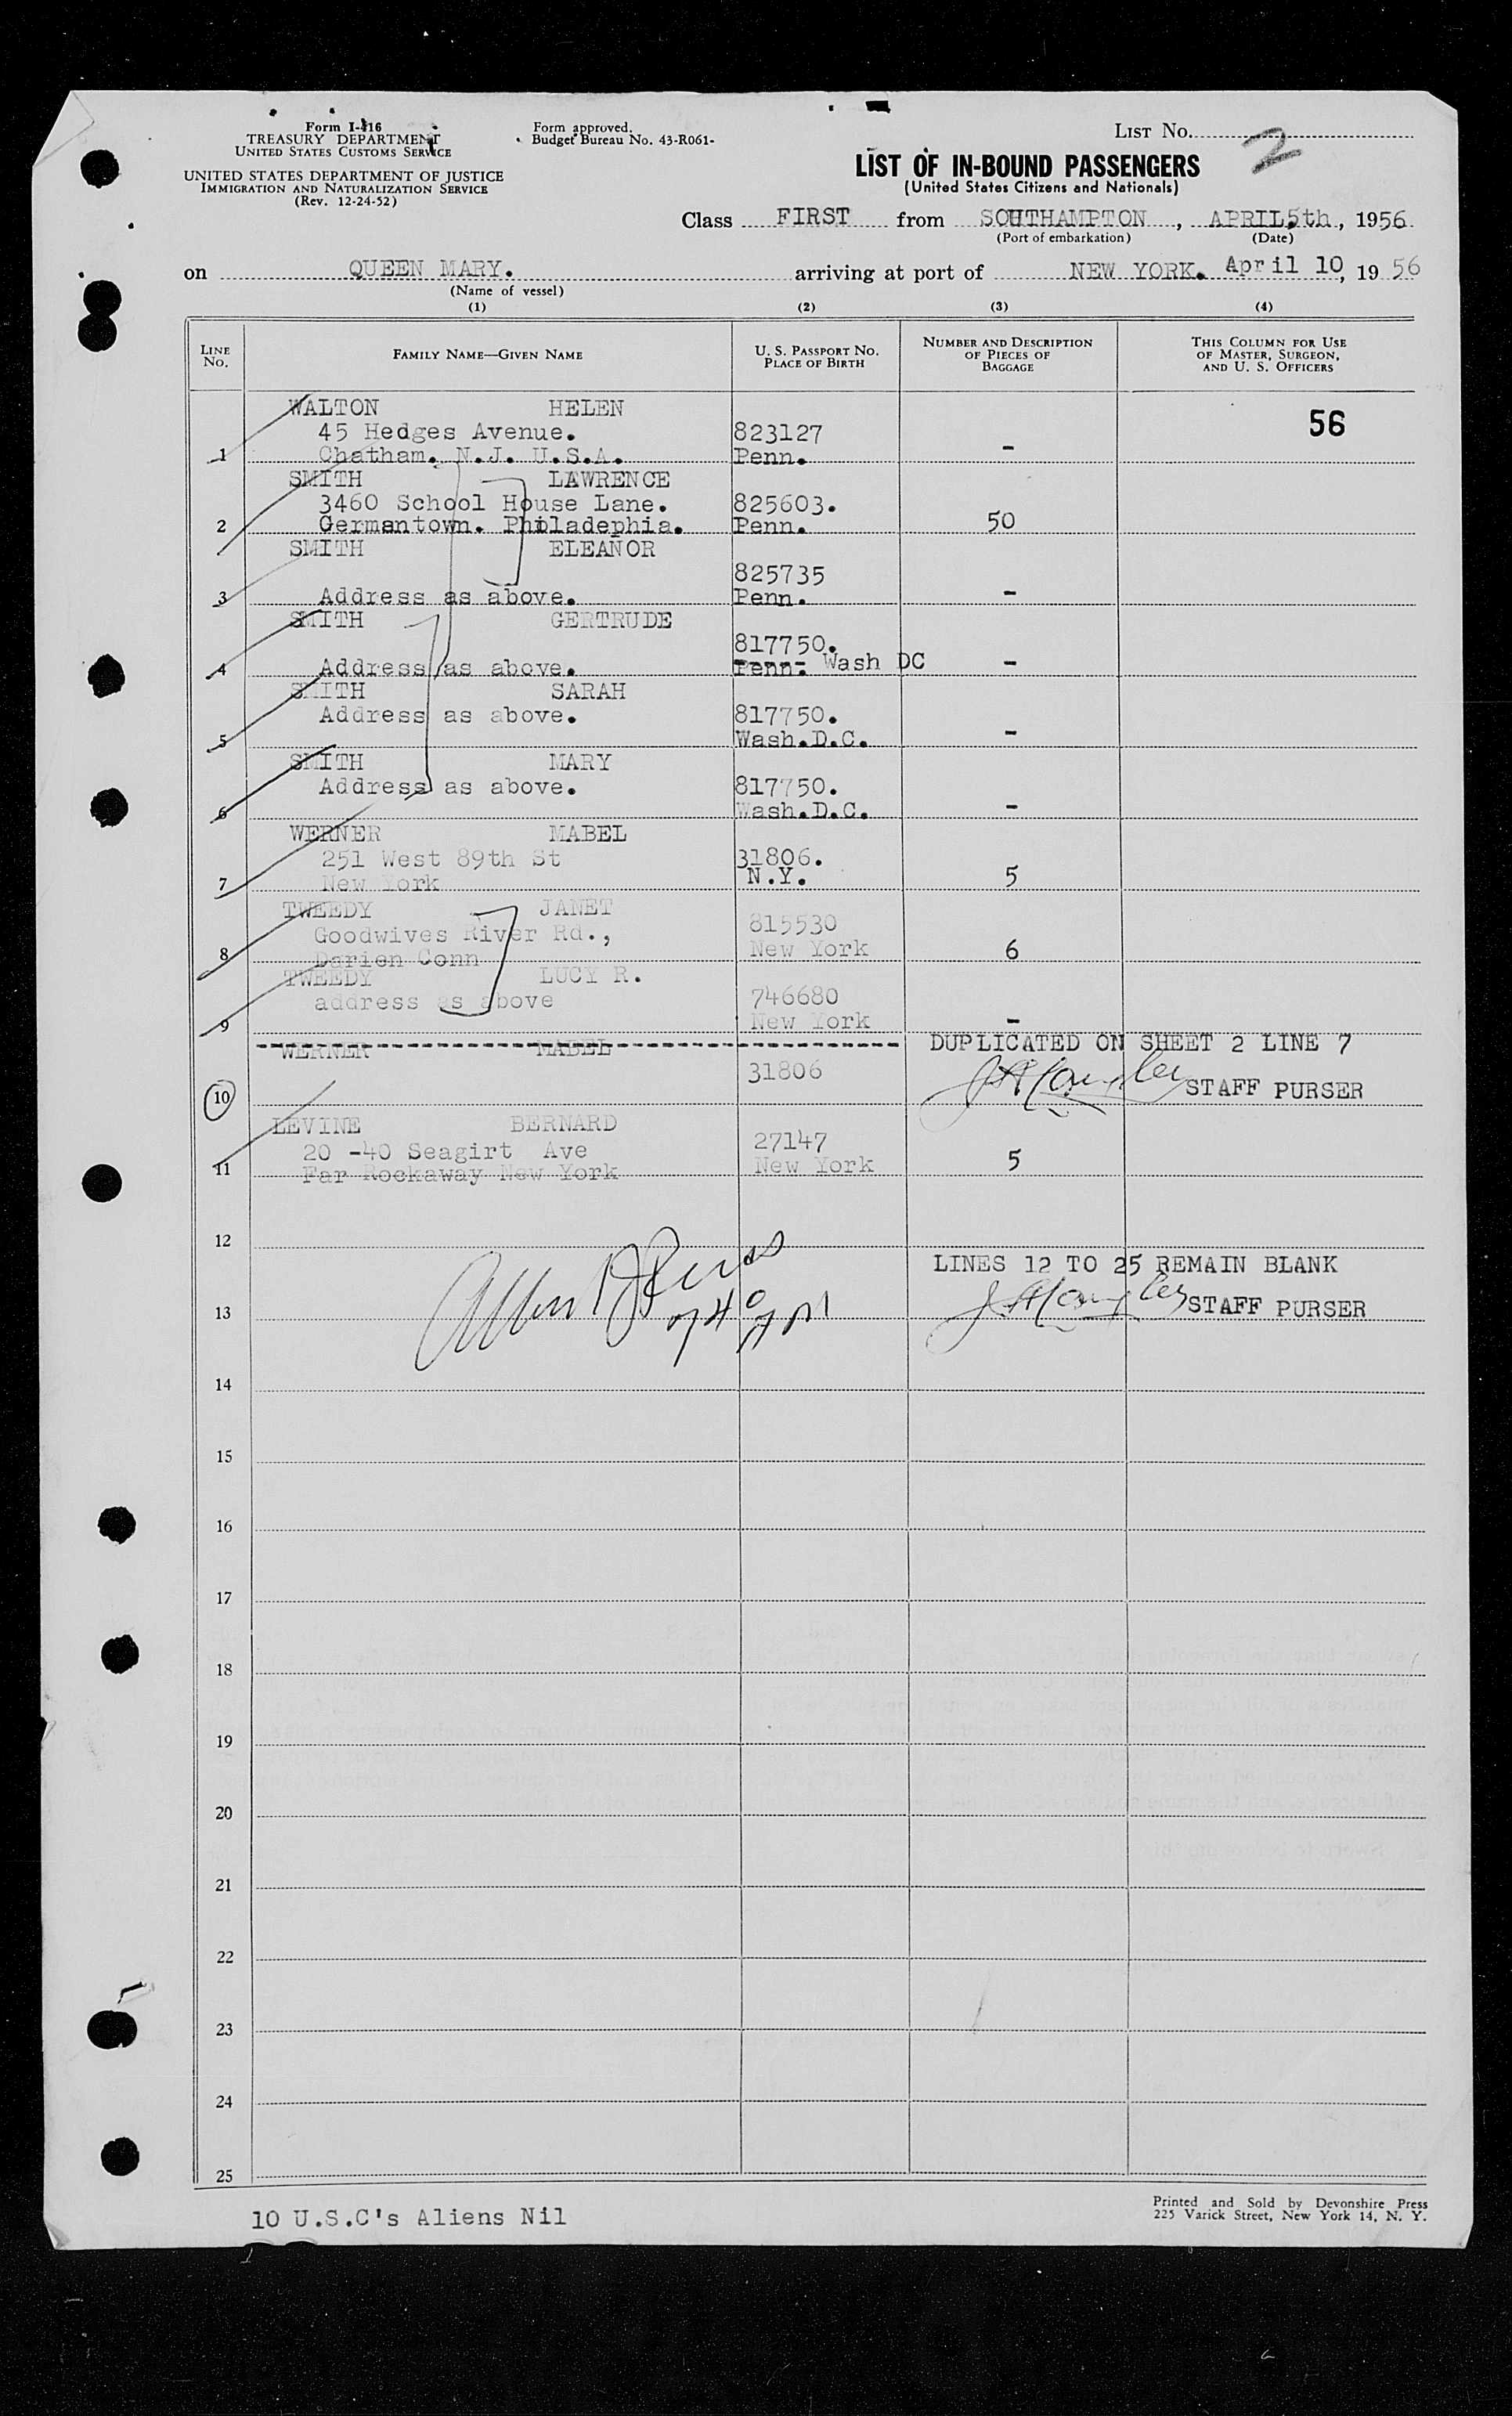 Form I-416
TREASURY DEPARTMENT
UNITED STATES CUSTOMS SERVICE
UNITED STATES DEPARTMENT OF JUSTICE
IMMIGRATION AND NATURALIZATION SERVICE
(Rev. 12-24-52)
Form approved.
Budget Bureau No. 43-R061-
LIST NO. 2
LIST OF IN-BOUND PASSENGERS
(United States Citizens and Nationals)
Class FIRST from SOUTHAMPTON, APRIL 5th, 1956
(Port of embarkation) (Date)
on QUEEN MARY. arriving at port of NEW YORK. April 10, 1956
(Name of vessel)
(1) (2) (3) (4)
LINE NO. FAMILY NAME—GIVEN NAME U. S. PASSPORT NO. PLACE OF BIRTH NUMBER AND DESCRIPTION OF PIECES OF BAGGAGE THIS COLUMN FOR USE OF MASTER, SURGEON, AND U. S. OFFICERS
WALTON HELEN 56
45 Hedges Avenue. 823127
1 Chatham. N.J. U.S.A. Penn. -
SMITH LAWRENCE
3460 School House Lane. 825603.
2 Germantown. Philadephia. Penn. 50
SMITH ELEANOR
825735
3 Address as above. Penn. -
SMITH GERTRUDE
817750.
4 Address as above. Penn. Wash DC -
SMITH SARAH
Address as above. 817750.
5 Wash.D.C. -
SMITH MARY
Address as above. 817750.
6 Wash.D.C. -
WERNER MABEL
251 West 89th St 31806.
7 New York N.Y. 5
TWEEDY JANET
Goodwives River Rd., 815530
8 Darien Conn New York 6
TWEEDY LUCY R.
address as above 746680
9 New York -
WERNER MABEL DUPLICATED ON SHEET 2 LINE 7
10 31806 STAFF PURSER
LEVINE BERNARD
20 -40 Seagirt Ave 27147
11 Far Rockaway New York New York 5
12
LINES 12 TO 25 REMAIN BLANK
13 STAFF PURSER
14
15
16
17
18
19
20
21
22
23
24
25
10 U.S.C's Aliens Nil
Printed and Sold by Devonshire Press
225 Varick Street, New York 14, N. Y.